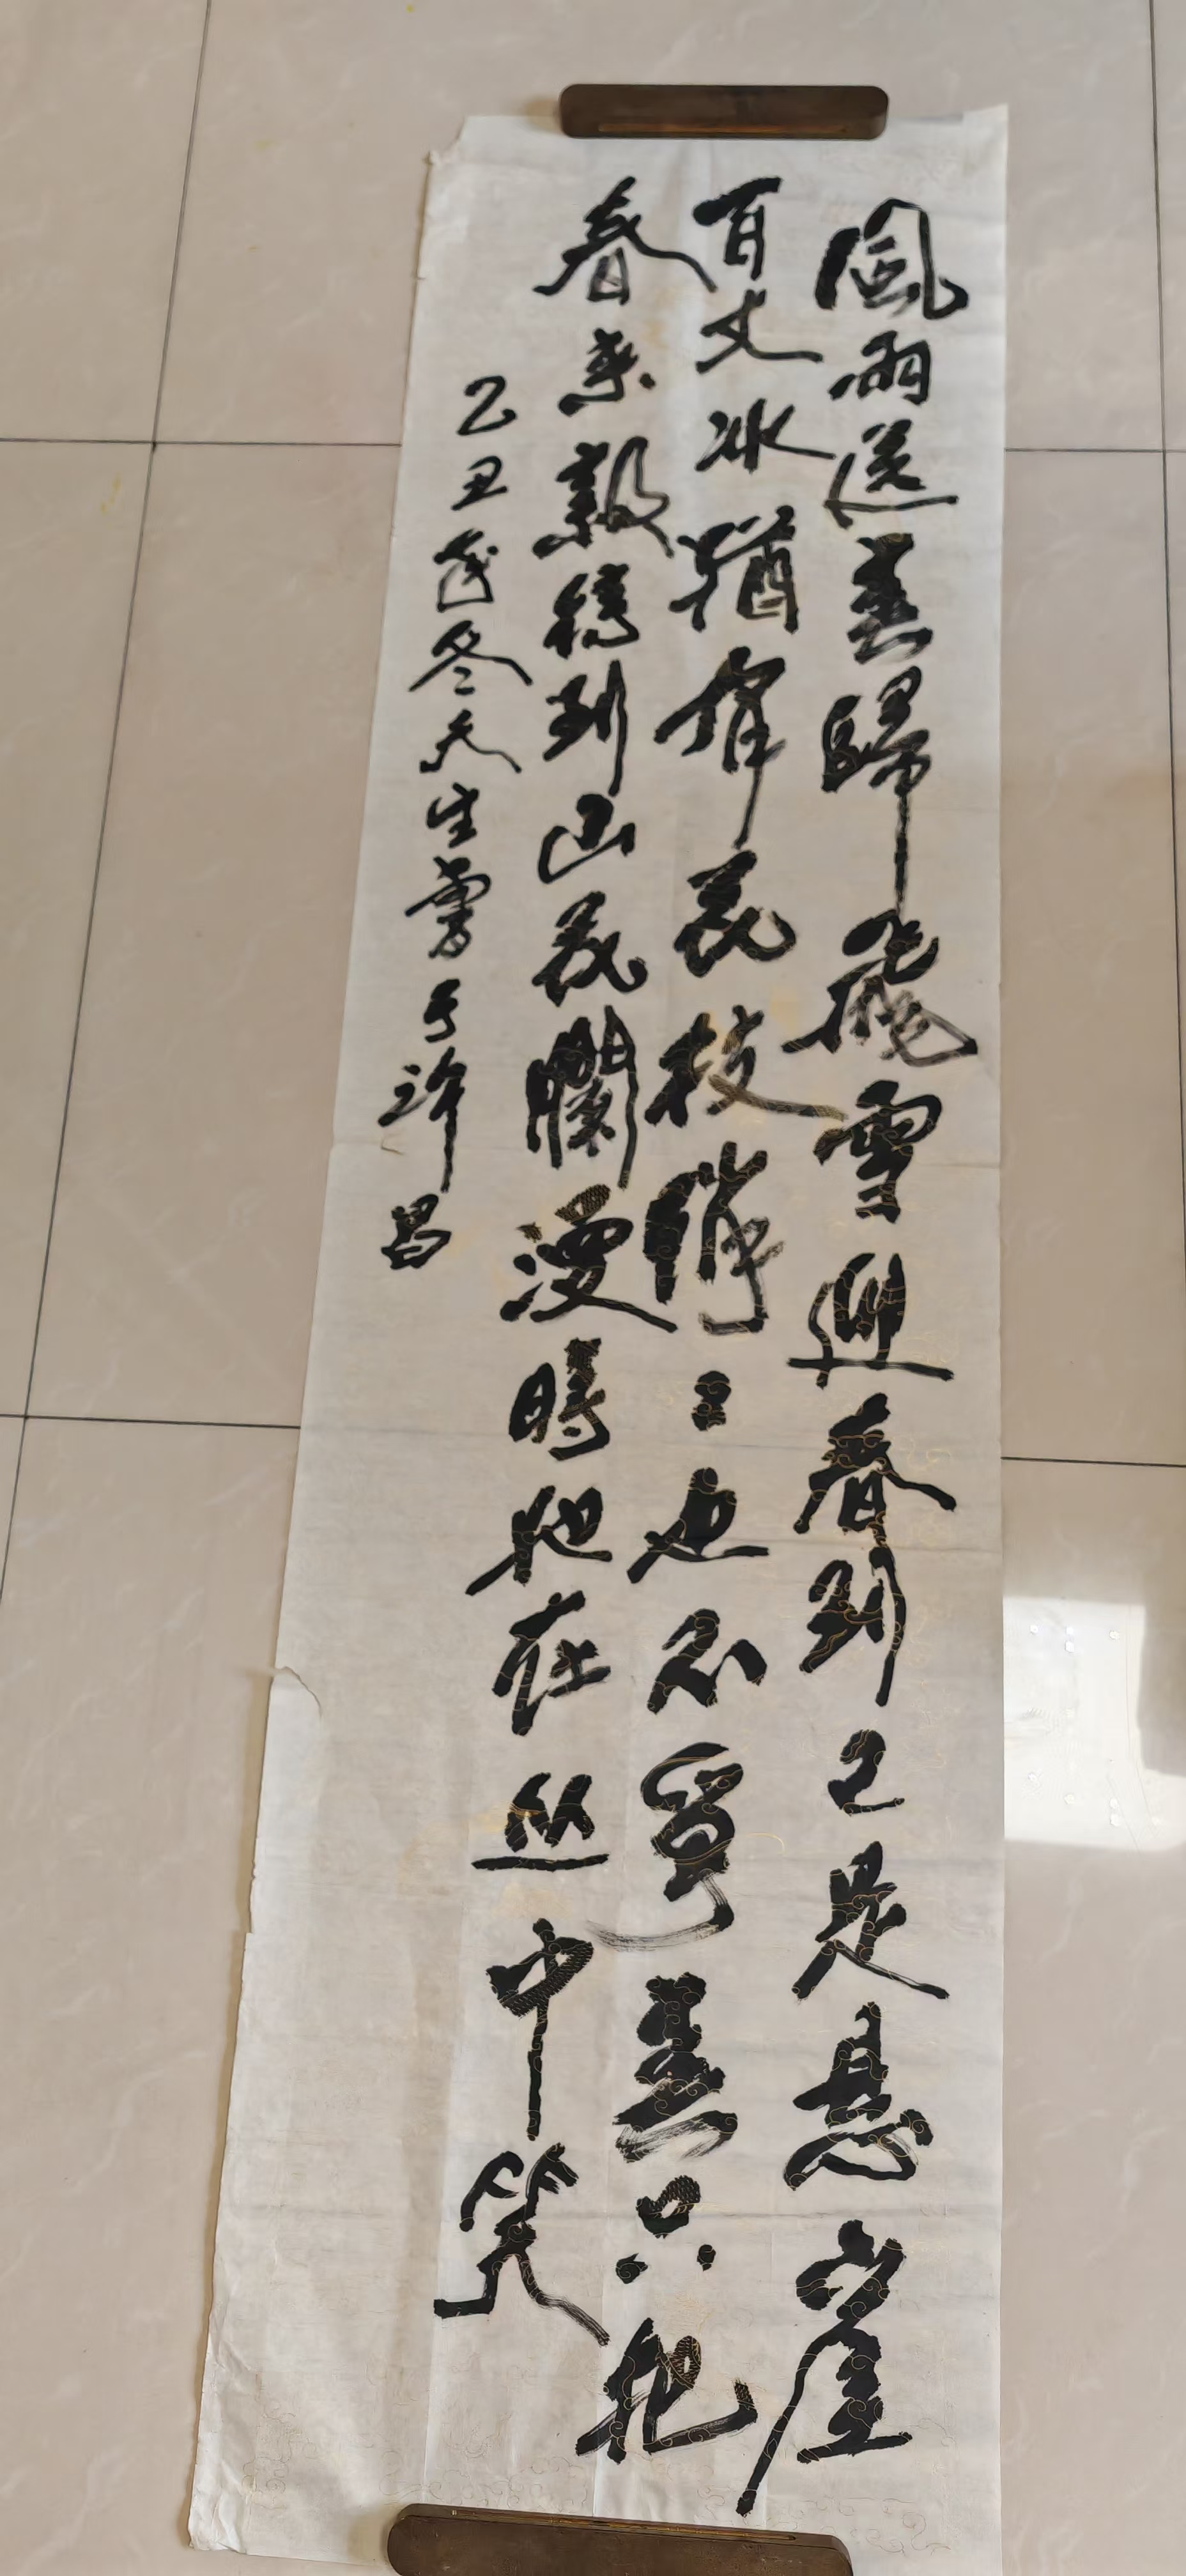 風雨送春歸飛雪迎春到已是悬崖
百丈冰猶有花枝俏々也不爭春只把
春來報待到山花爛漫時她在丛中笑
乙丑歲冬天生書于許昌